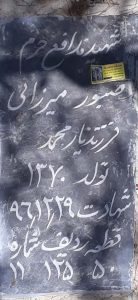 شهید مدافع حرم
صبور میرزائی
فرزند یار محمد
تولد ۱۳۷۰
شهادت ۹۶/۲/۲۹
قطعه ردیف شماره
۵۰ ۱۳۵ ۱۱